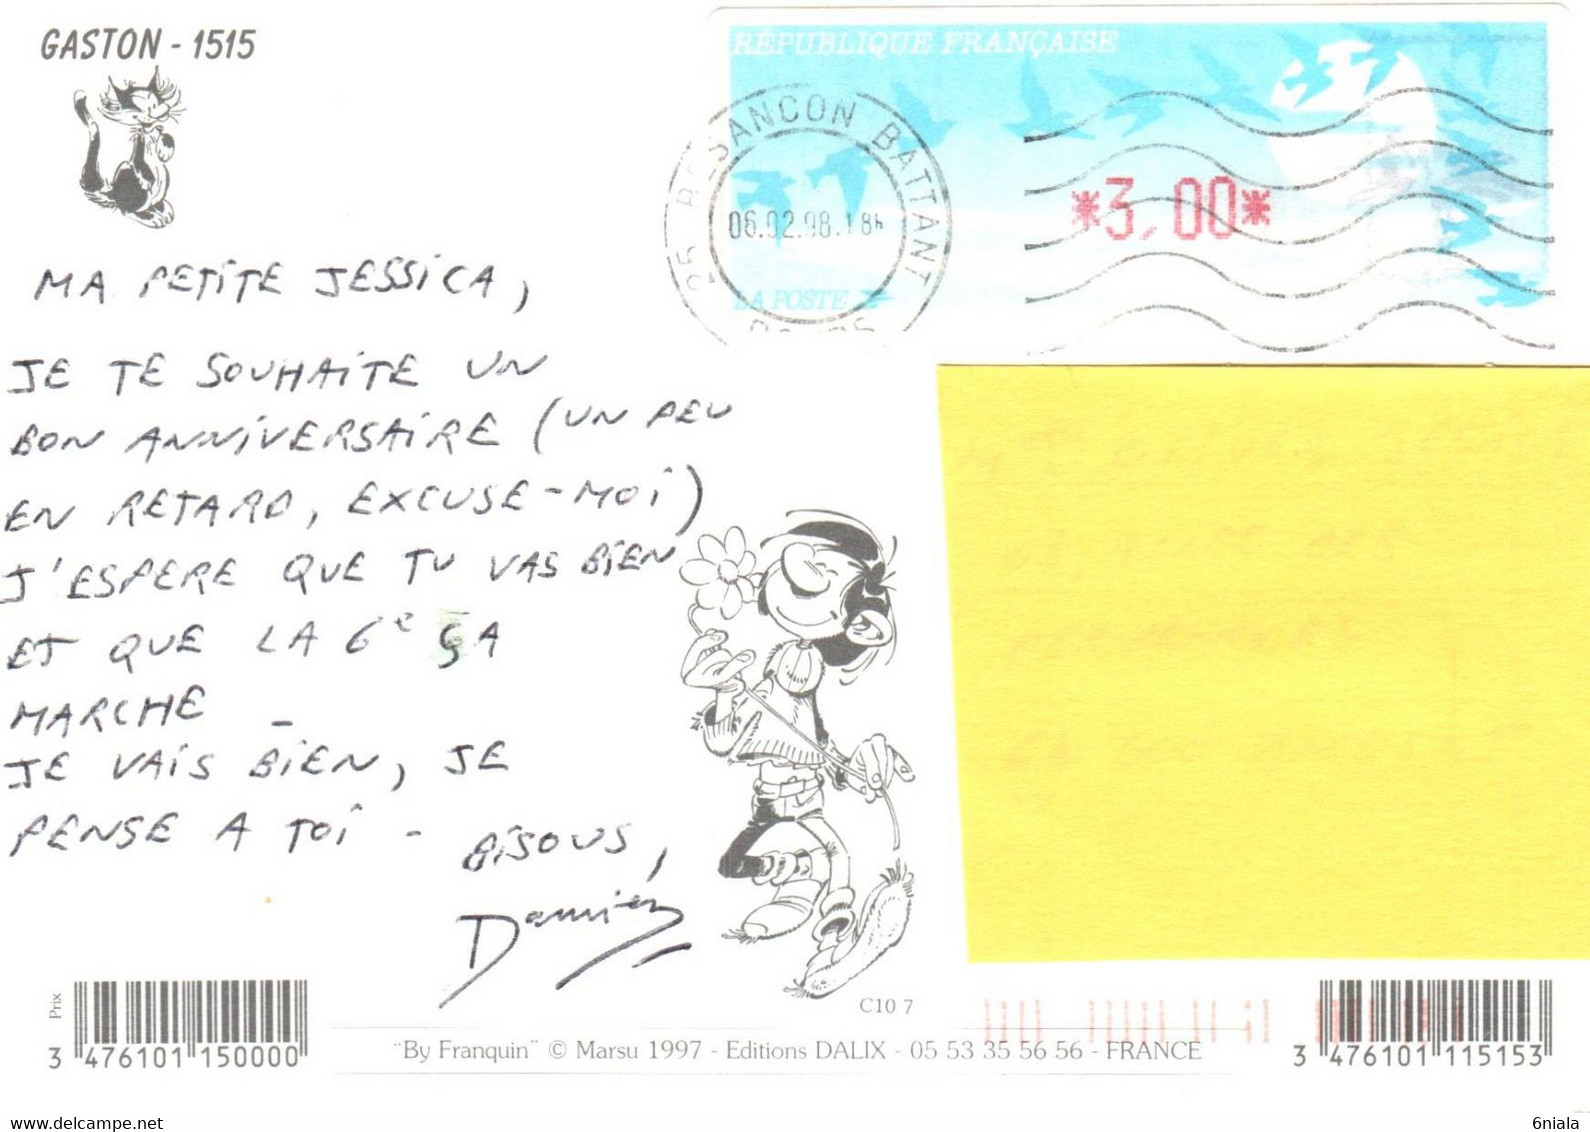 GASTON - 1515
RÉPUBLIQUE FRANÇAISE
25 BESANCON BATTANT
DOUBS
06.02.98.18h
*3,00*
LA POSTE
MA PETITE JESSICA,
JE TE SOUHAITE UN
BON ANNIVERSAIRE (UN PEU
EN RETARD, EXCUSE-MOI)
J'ESPERE QUE TU VAS BIEN
ET QUE LA 6e ÇA
MARCHE -
JE VAIS BIEN, JE
PENSE A TOI - BISOUS,
Damien
C10 7
Prix
3 476101 150000
"By Franquin" © Marsu 1997 - Editions DALIX - 05 53 35 56 56 - FRANCE
3 476101 115153
6niala